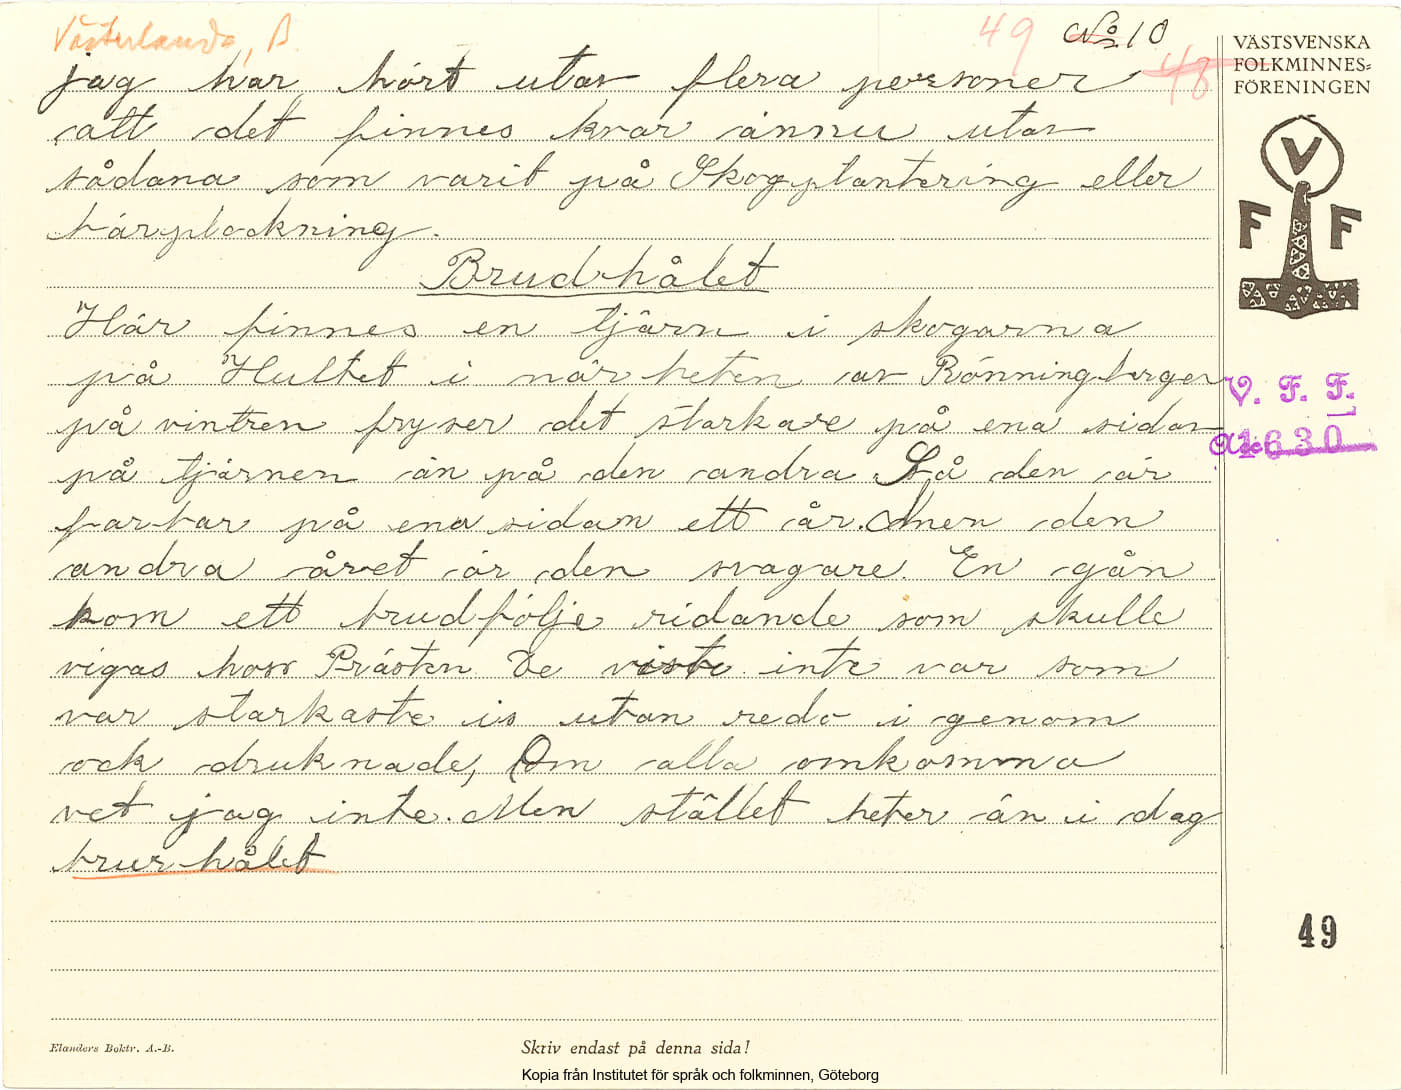 Västerlanda, B
49 No 10
48
VÄSTSVENSKA
FOLKMINNES=
FÖRENINGEN
V
F F
jag har hört utav flera personer
att det finnes kvar ännu utav
sådana som varit på Skogplantering eller
bärplockning.
Brudhålet
Här finnes en tjärn i skogarna
på Hultet i närheten av Rönningberget
på vintren fryser det starkare på ena sidan
på tjärnen än på den andra Så den är
farbar på ena sidan ett år. Men den
andra året är den svagare. En gån
kom ett brudfölje ridande som skulle
vigas hoss Prästen De viste inte var som
var starkaste is utan redo i genom
ock druknade, Om alla omkommo
vet jag inte. Men stället heter än i dag
brurhålet
V. F. F.
1630
49
Elanders Boktr. A.-B.
Skriv endast på denna sida!
Kopia från Institutet för språk och folkminnen, Göteborg